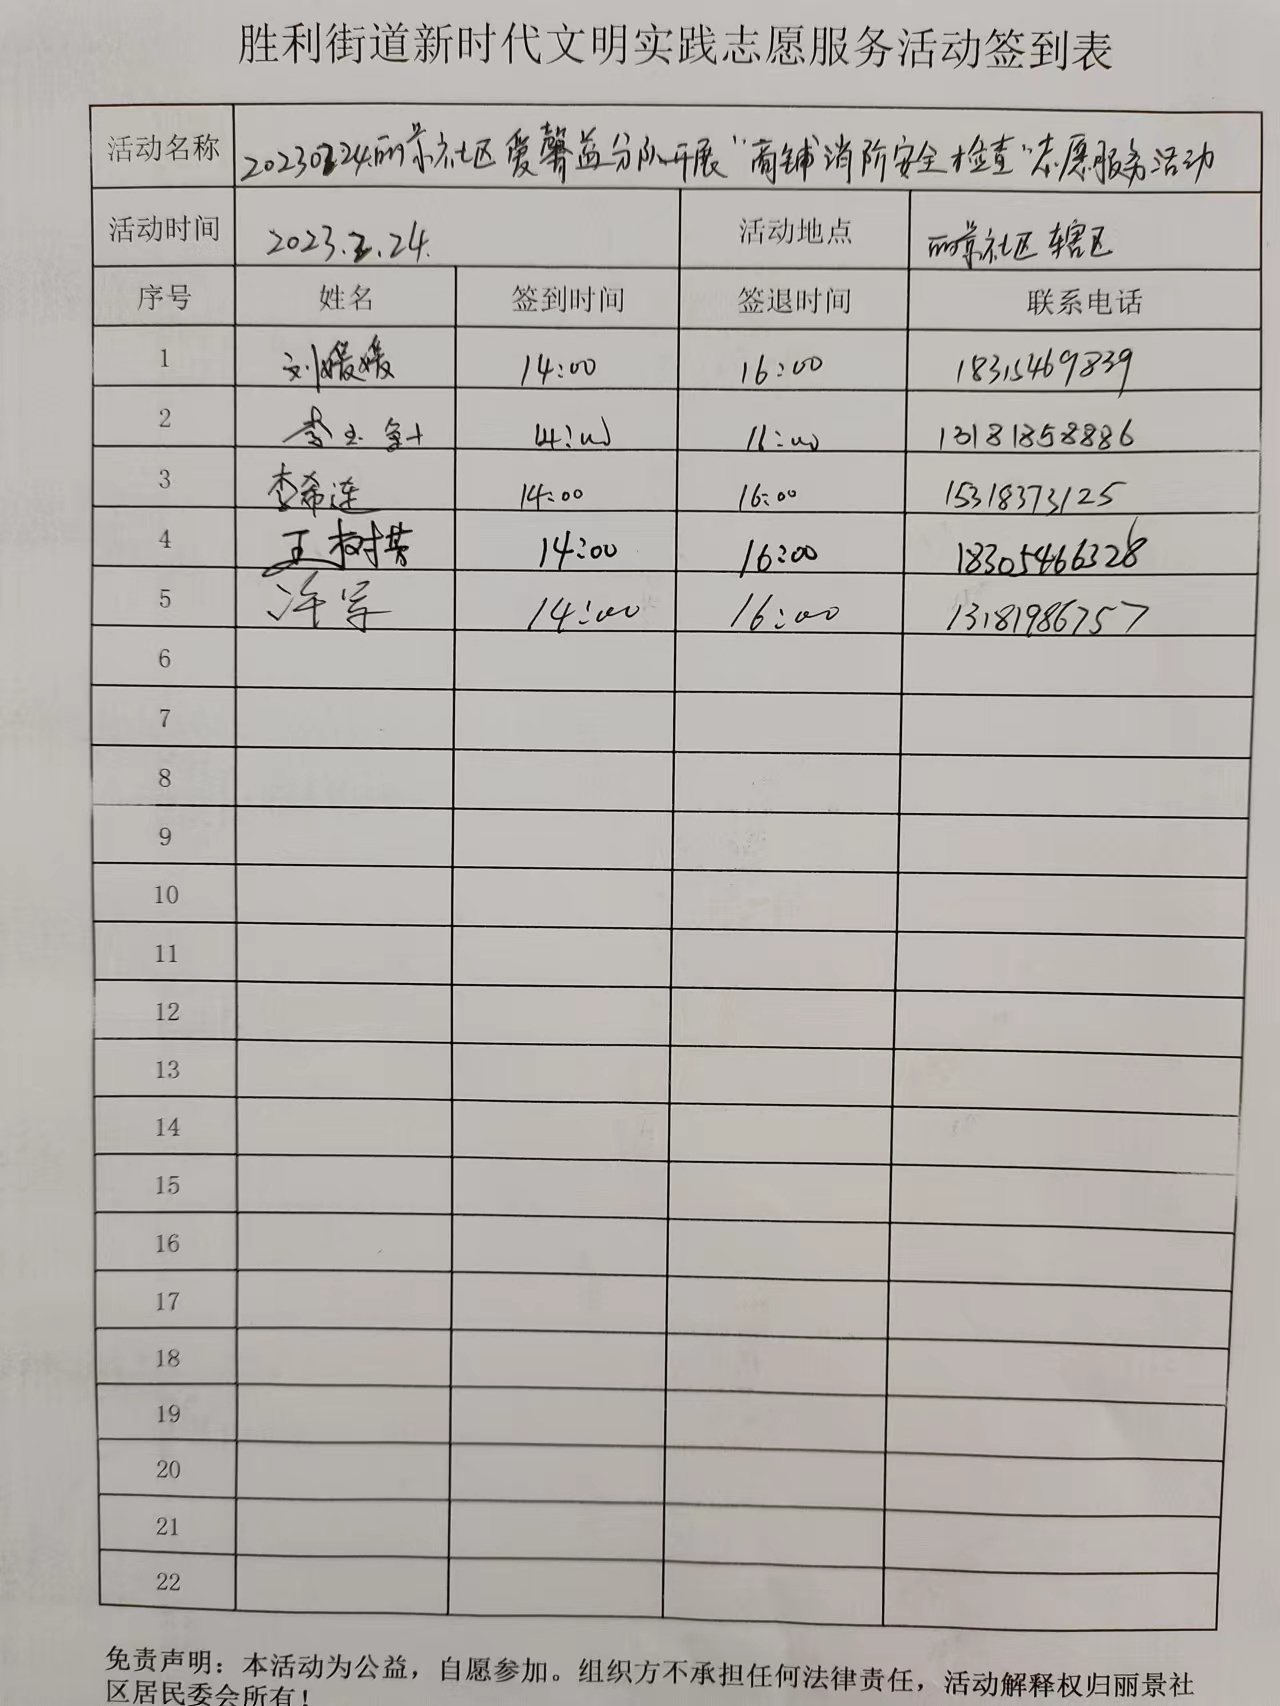 胜利街道新时代文明实践志愿服务活动签到表
活动名称 20230224丽景社区爱馨益分队开展“商铺消防安全检查”志愿服务活动
活动时间 2023.2.24. 活动地点 丽景社区辖区
序号 姓名 签到时间 签退时间 联系电话
1 刘媛媛 14:00 16:00 18315469839
2 李玉 14:00 16:00 13181858886
3 李希连 14:00 16:00 15318373125
4 王树 14:00 16:00 18305466328
5 许军 14:00 16:00 13181986757
6
7
8
9
10
11
12
13
14
15
16
17
18
19
20
21
22
免责声明：本活动为公益，自愿参加。组织方不承担任何法律责任，活动解释权归丽景社
区居民委会所有！